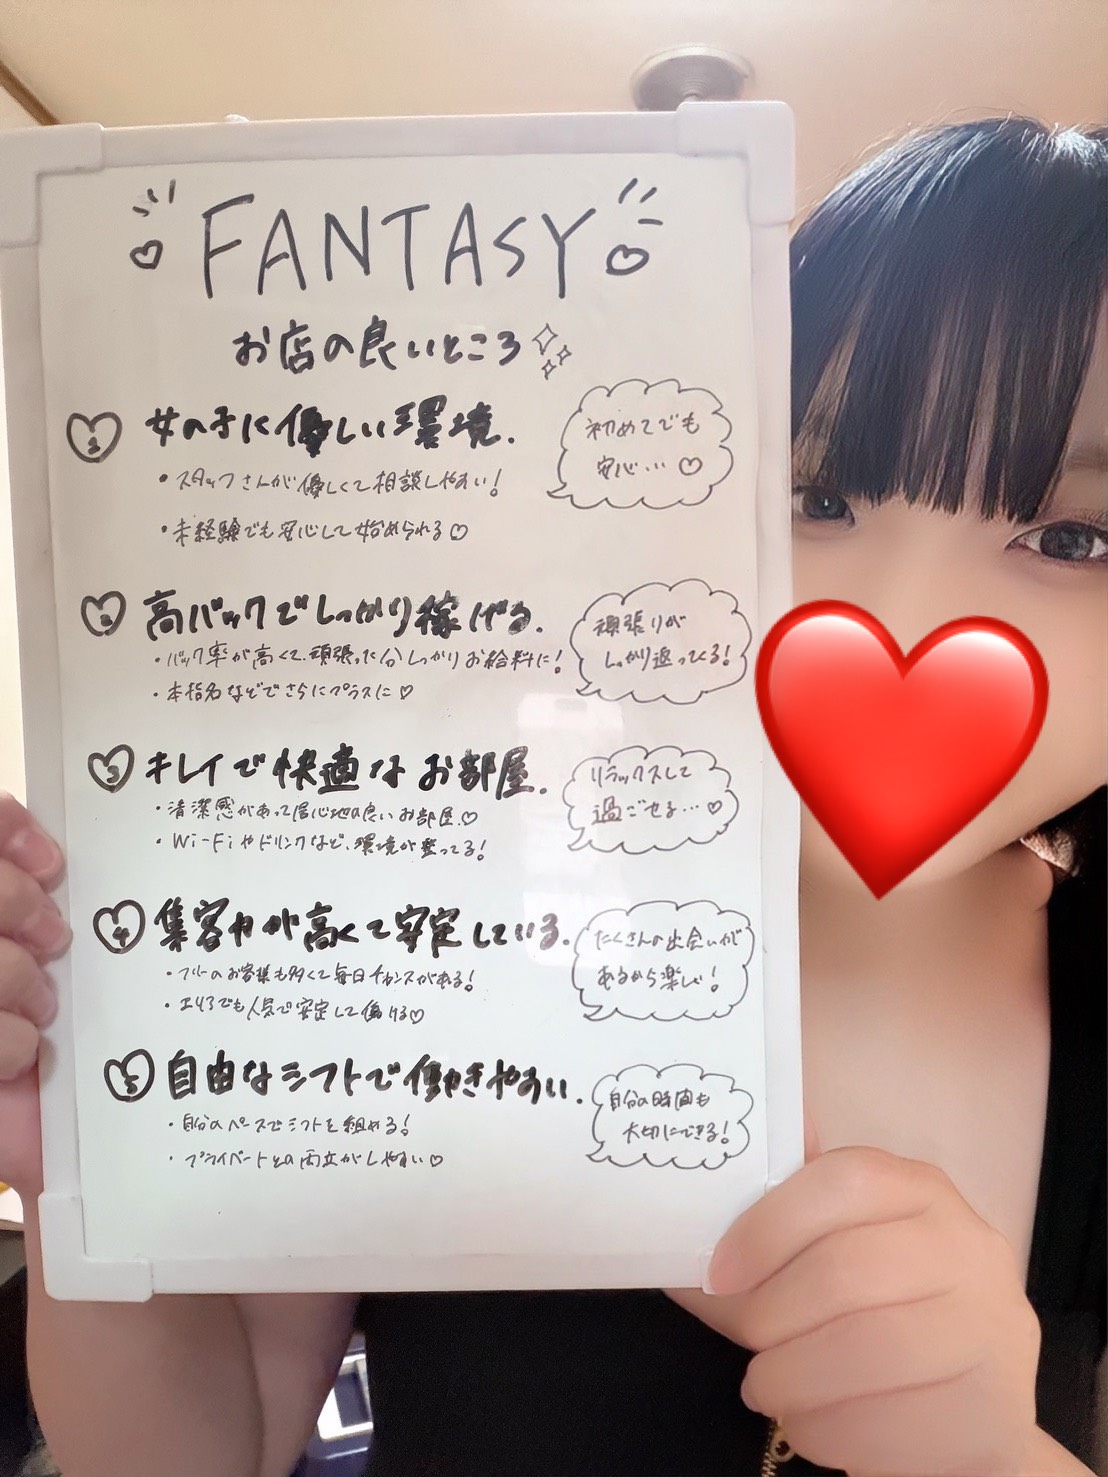 FANTASY
お店の良いところ
1 女の子に優しい環境.
・スタッフさんが優しくて相談しやすい!
・未経験でも安心して始められる♡
初めてでも
安心…♡
2 高バックでしっかり稼げる.
・バック率が高くて、頑張った分しっかりお給料に!
・本指名などでさらにプラスに♡
頑張りが
しっかり返ってくる!
3 キレイで快適なお部屋.
・清潔感があって居心地の良いお部屋♡
・Wi-Fiやドリンクなど、環境が整ってる!
リラックスして
過ごせる…♡
4 集客力が高くて安定している.
・フリーのお客様も多くて毎日チャンスがある!
・エリアでも人気で安定して働ける♡
たくさんの出会いが
あるから楽しい!
5 自由なシフトで働きやすい.
・自分のペースでシフトを組める!
・プライベートとの両立がしやすい♡
自分の時間も
大切にできる!